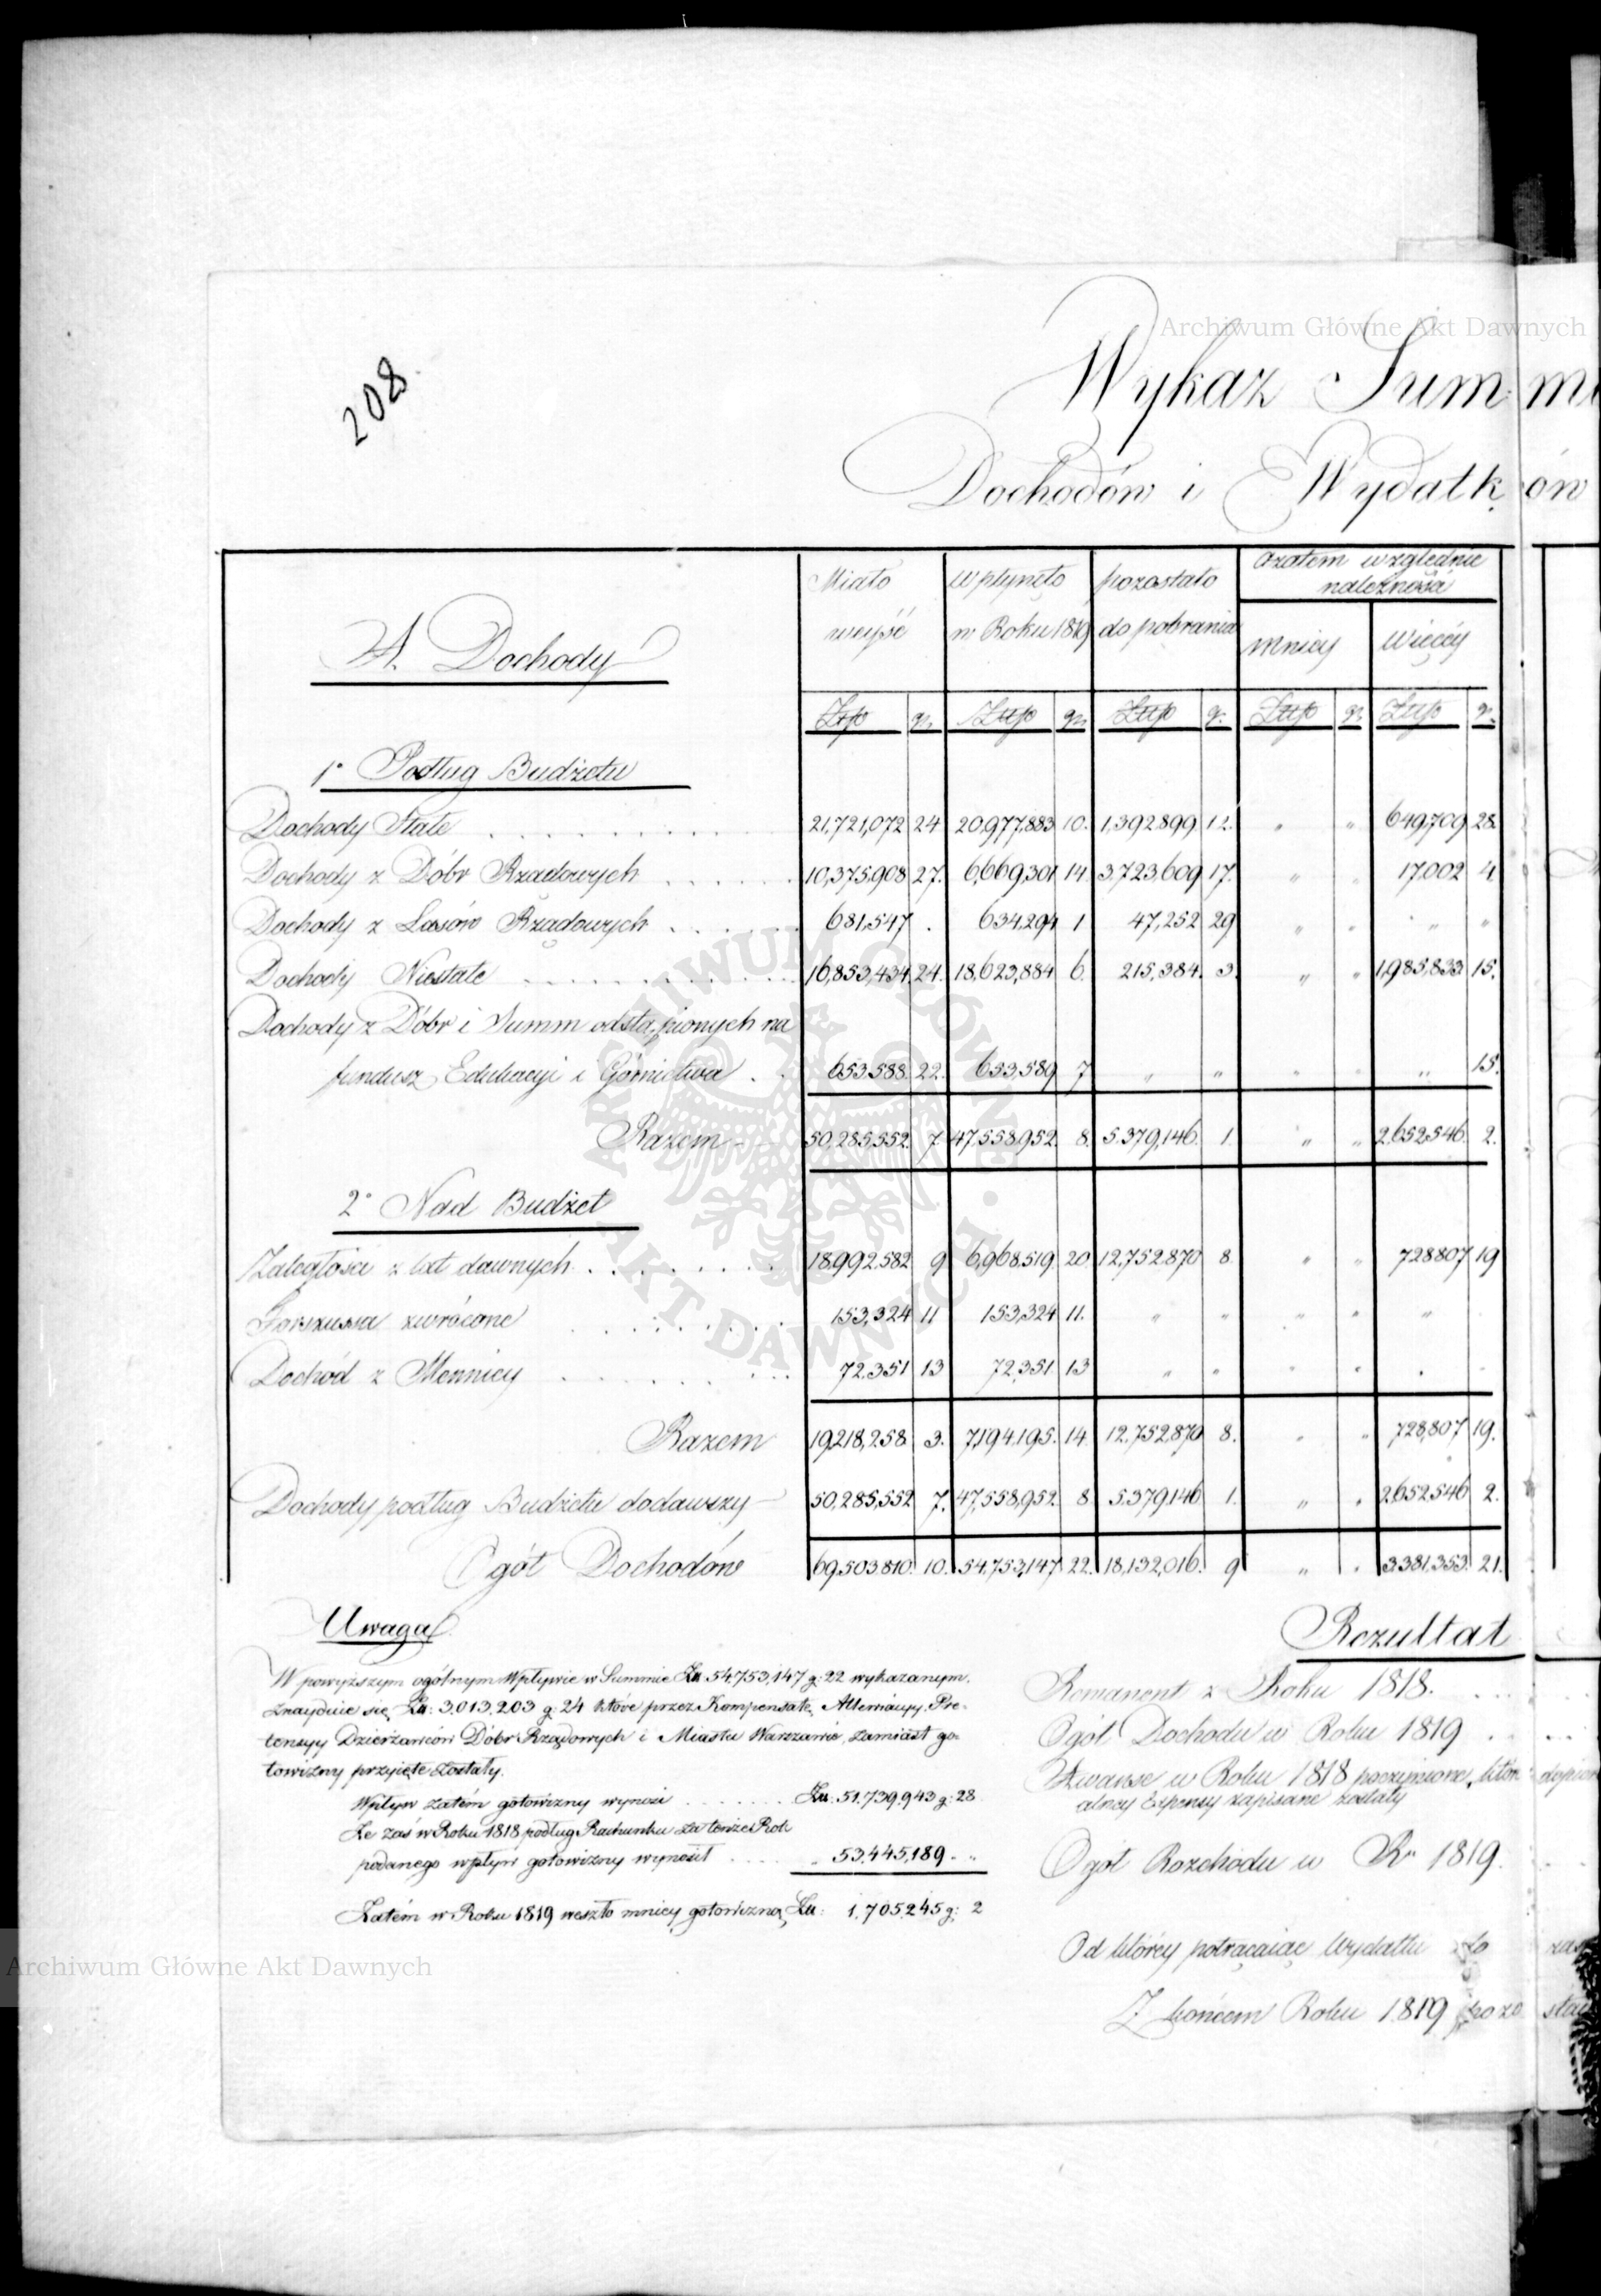 Archiwum Główne Akt Dawnych
208.
Wykaz Summ
Dochodów i Wydatków
A. Dochody
Miało weyść
wpłynęło w Roku 1819
pozostało do pobrania
azatem względnie należności
mniey
więcéy
Złtp gr. Złtp gr. Złtp gr. Złtp gr. Złtp gr.
1° Podług Budżetu
Dochody Stałe . . . . . . . . . 21,721,072 24 20,977,883 10. 1,392,899 12. " " 649,709 28.
Dochody z Dóbr Rządowych . . . . . . 10,375,908 27. 6,669,301 14 3,723,609 17. " " 17,002 4.
Dochody z Lasów Rządowych . . . . . . 681,547 . 634,294 1 47,252 29 " " " "
Dochody Niestałe . . . . . . . . . . . . 16,853,434 24. 18,623,884 6. 215,384. 3. " " 1,985,833 15.
Dochody z Dóbr i Summ odstąpionych na
fundusz Edukacyi i Górnictwa . . 653,588. 22. 653,589 7 " " " " " 15.
Razem - 50,285,552. 7. 47,558,952. 8. 5,379,146. 1. " " 2,652,546. 2.
2° Nad Budżet
Zaległości z lat dawnych . . . . . . . . 18,992,582 9 6,968,519 20 12,752,870 8 " " 728,807 19
Forszussa zwrócone . . . . . . . . 153,324 11 153,324 11. " " " " "
Dochód z Mennicy . . . . . . . . 72,351 13 72,351. 13 " " " " . .
Razem 19,218,258. 3. 7,194,195. 14 12,752,870 8. " " 728,807 19.
Dochody podług Budżetu dodawszy - 50,285,552 7. 47,558,952. 8 5,379,146 1. " " 2,652,546 2.
Ogół Dochodów 69,503,810. 10. 54,753,147 22. 18,132,016. 9 " " 3,381,353. 21.
Uwaga.
W powyższym ogólnym Wpływie w Summie Zło. 54,753,147 g: 22 wykazanym,
znayduie się Zło: 3,013,203 g: 24 które przez Kompensatę Pre-
tensyy Dzierżawców Dóbr Rządowych i Miasta Warszawie, zamiast go-
towizny przyięte zostały.
Wpływ zatém gotowizny wynosi . . . . . . . Zło: 51,739,943 g: 28
Że zaś w Roku 1818 podług Rachunku za tenże Rok
podanego wpływ gotowizny wynosił . . . . " 53,445,189. " "
Zatém w Roku 1819 weszło mniey gotowizną Zło: 1,705,245 g: 2
Rezultat
Remanent z Roku 1818. . . .
Ogół Dochodu w Roku 1819 . . . .
Awanse w Roku 1818 poczynione, które dopiero
zapisane zostały
Ogół Rozchodu w R° 1819. . .
Od którey potrącaiąc Wydatki
Z końcem Roku 1819 pozo
Archiwum Główne Akt Dawnych
ARCHIWUM GŁÓWNE • AKT DAWNYCH